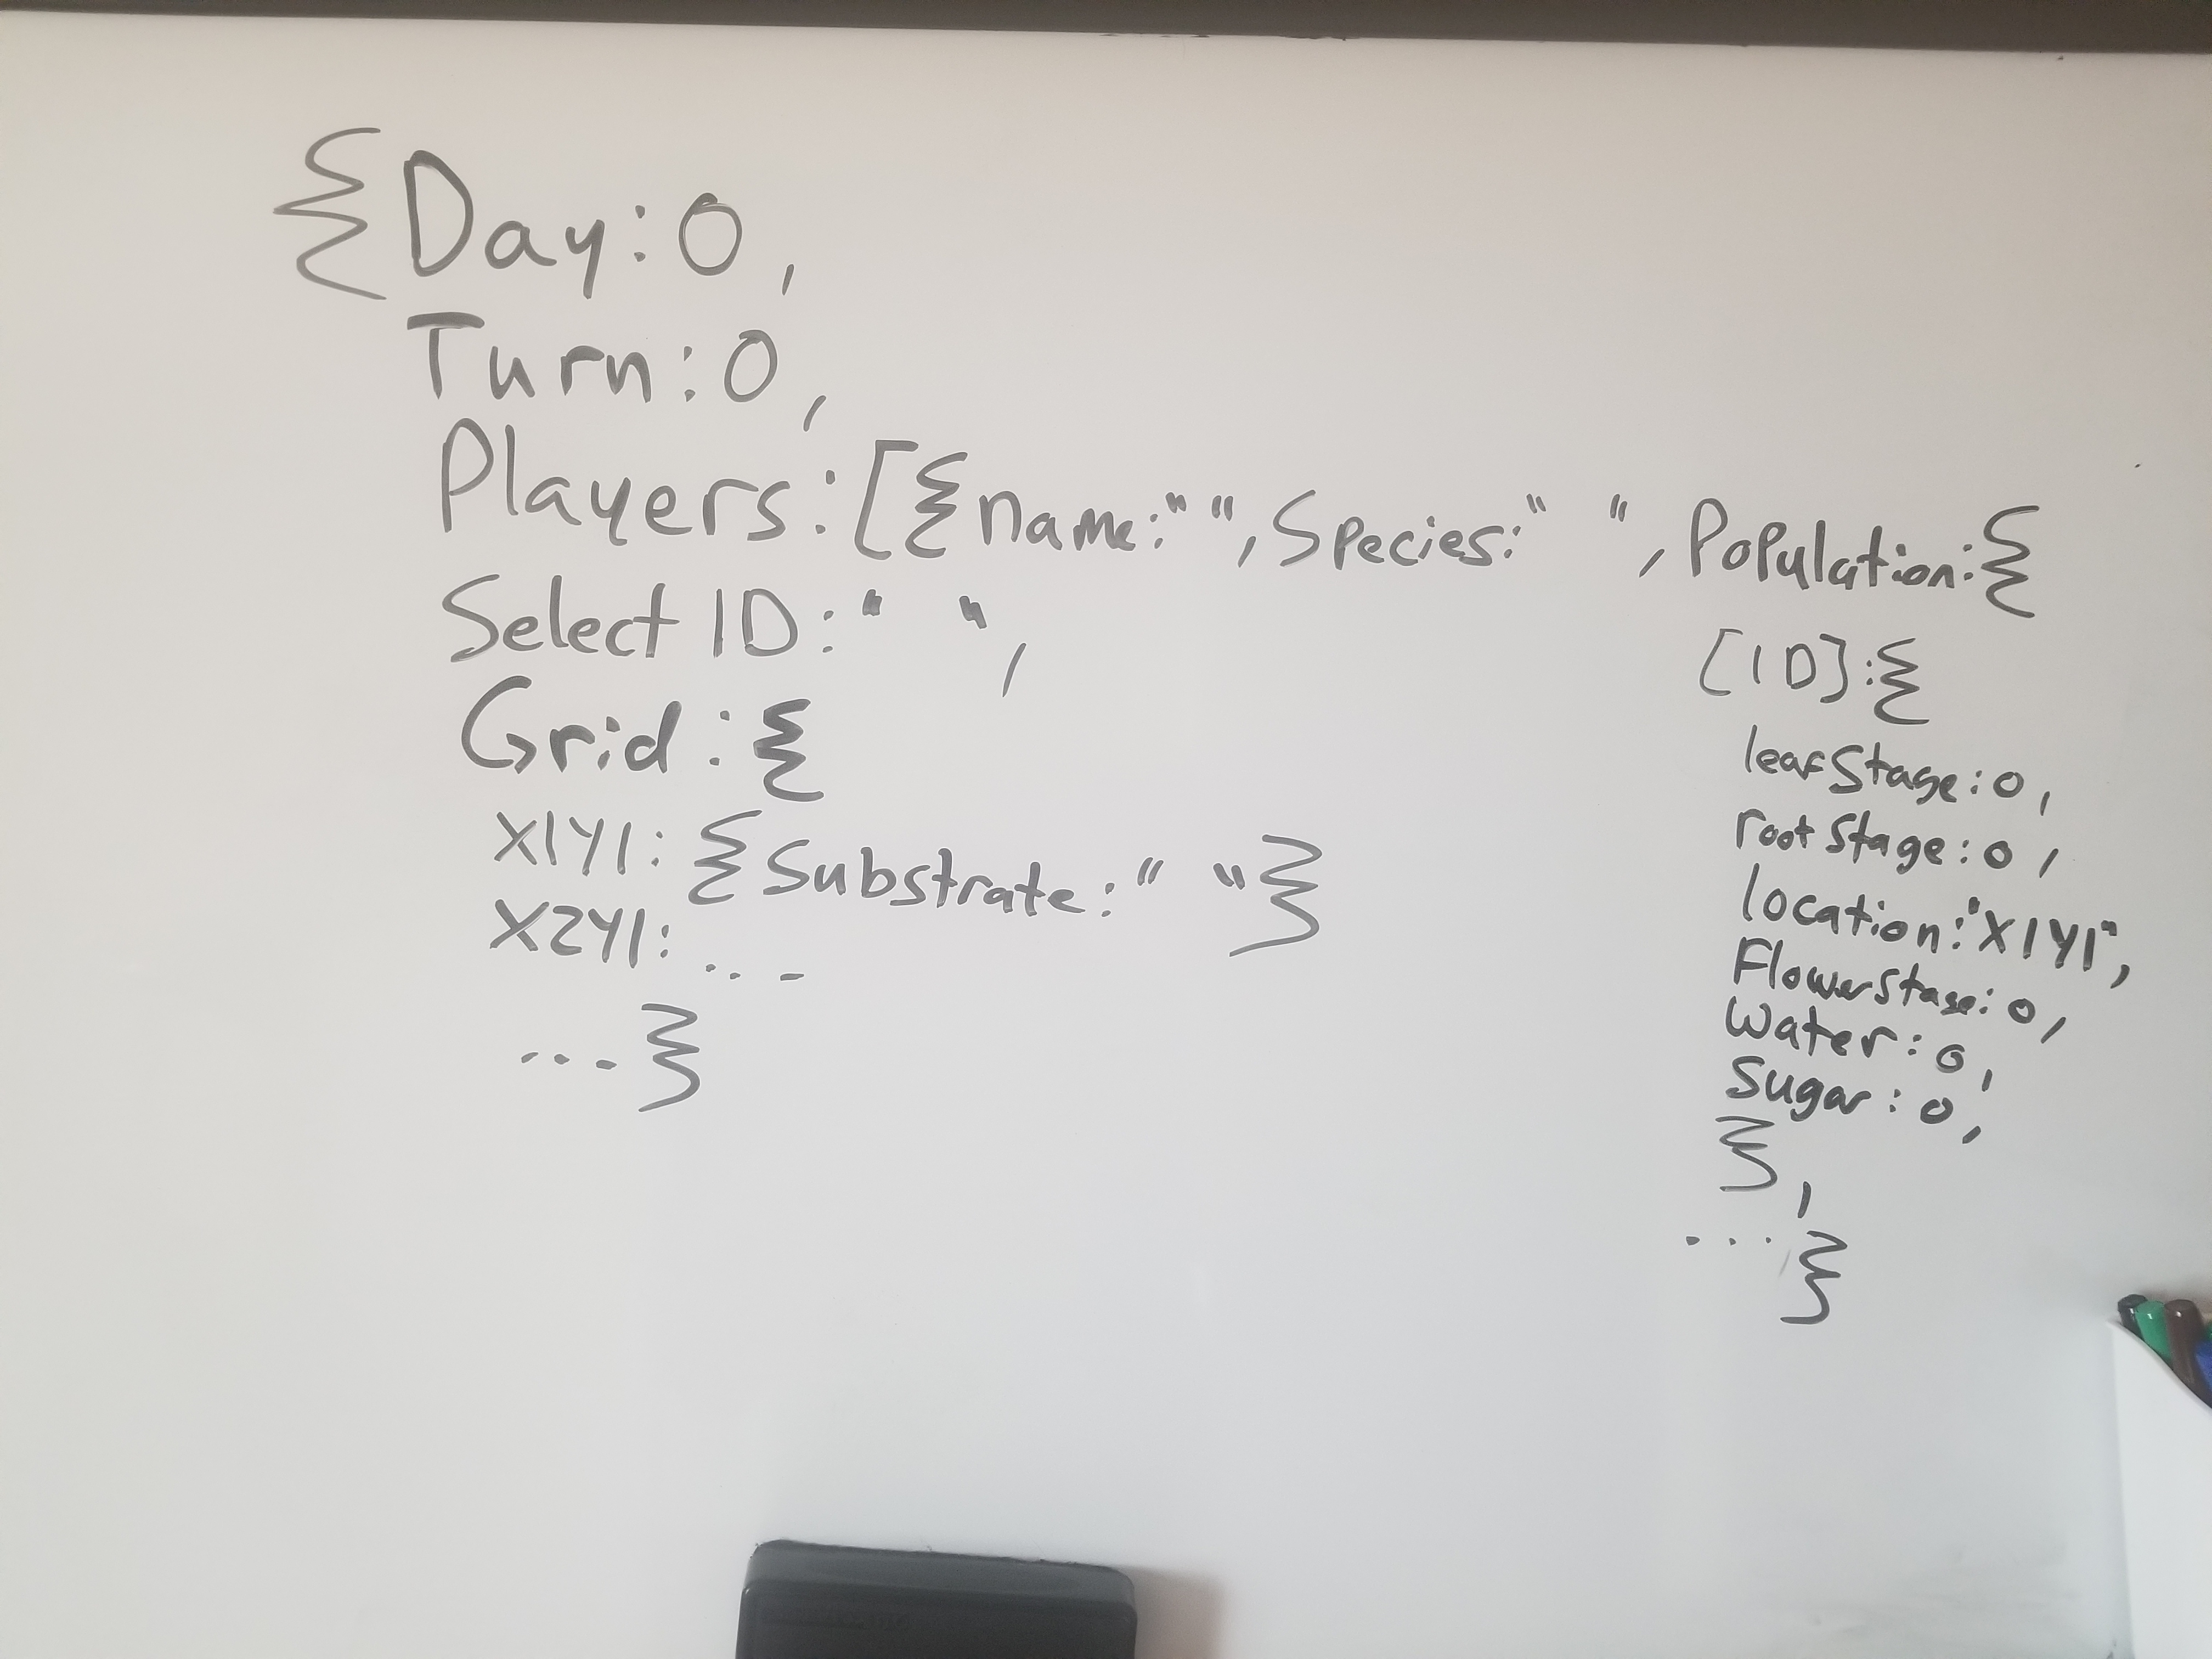 {Day:0,
Turn:0,
Players:[{name:"",Species:" ",Population:{
[ID]:{
leafStage:0,
rootStage:0,
location:"X1Y1",
FlowerStage:0,
Water:0,
Sugar:0,
},
...}
Select ID:" ",
Grid:{
X1Y1:{Substrate:" "}
X2Y1:...
...}